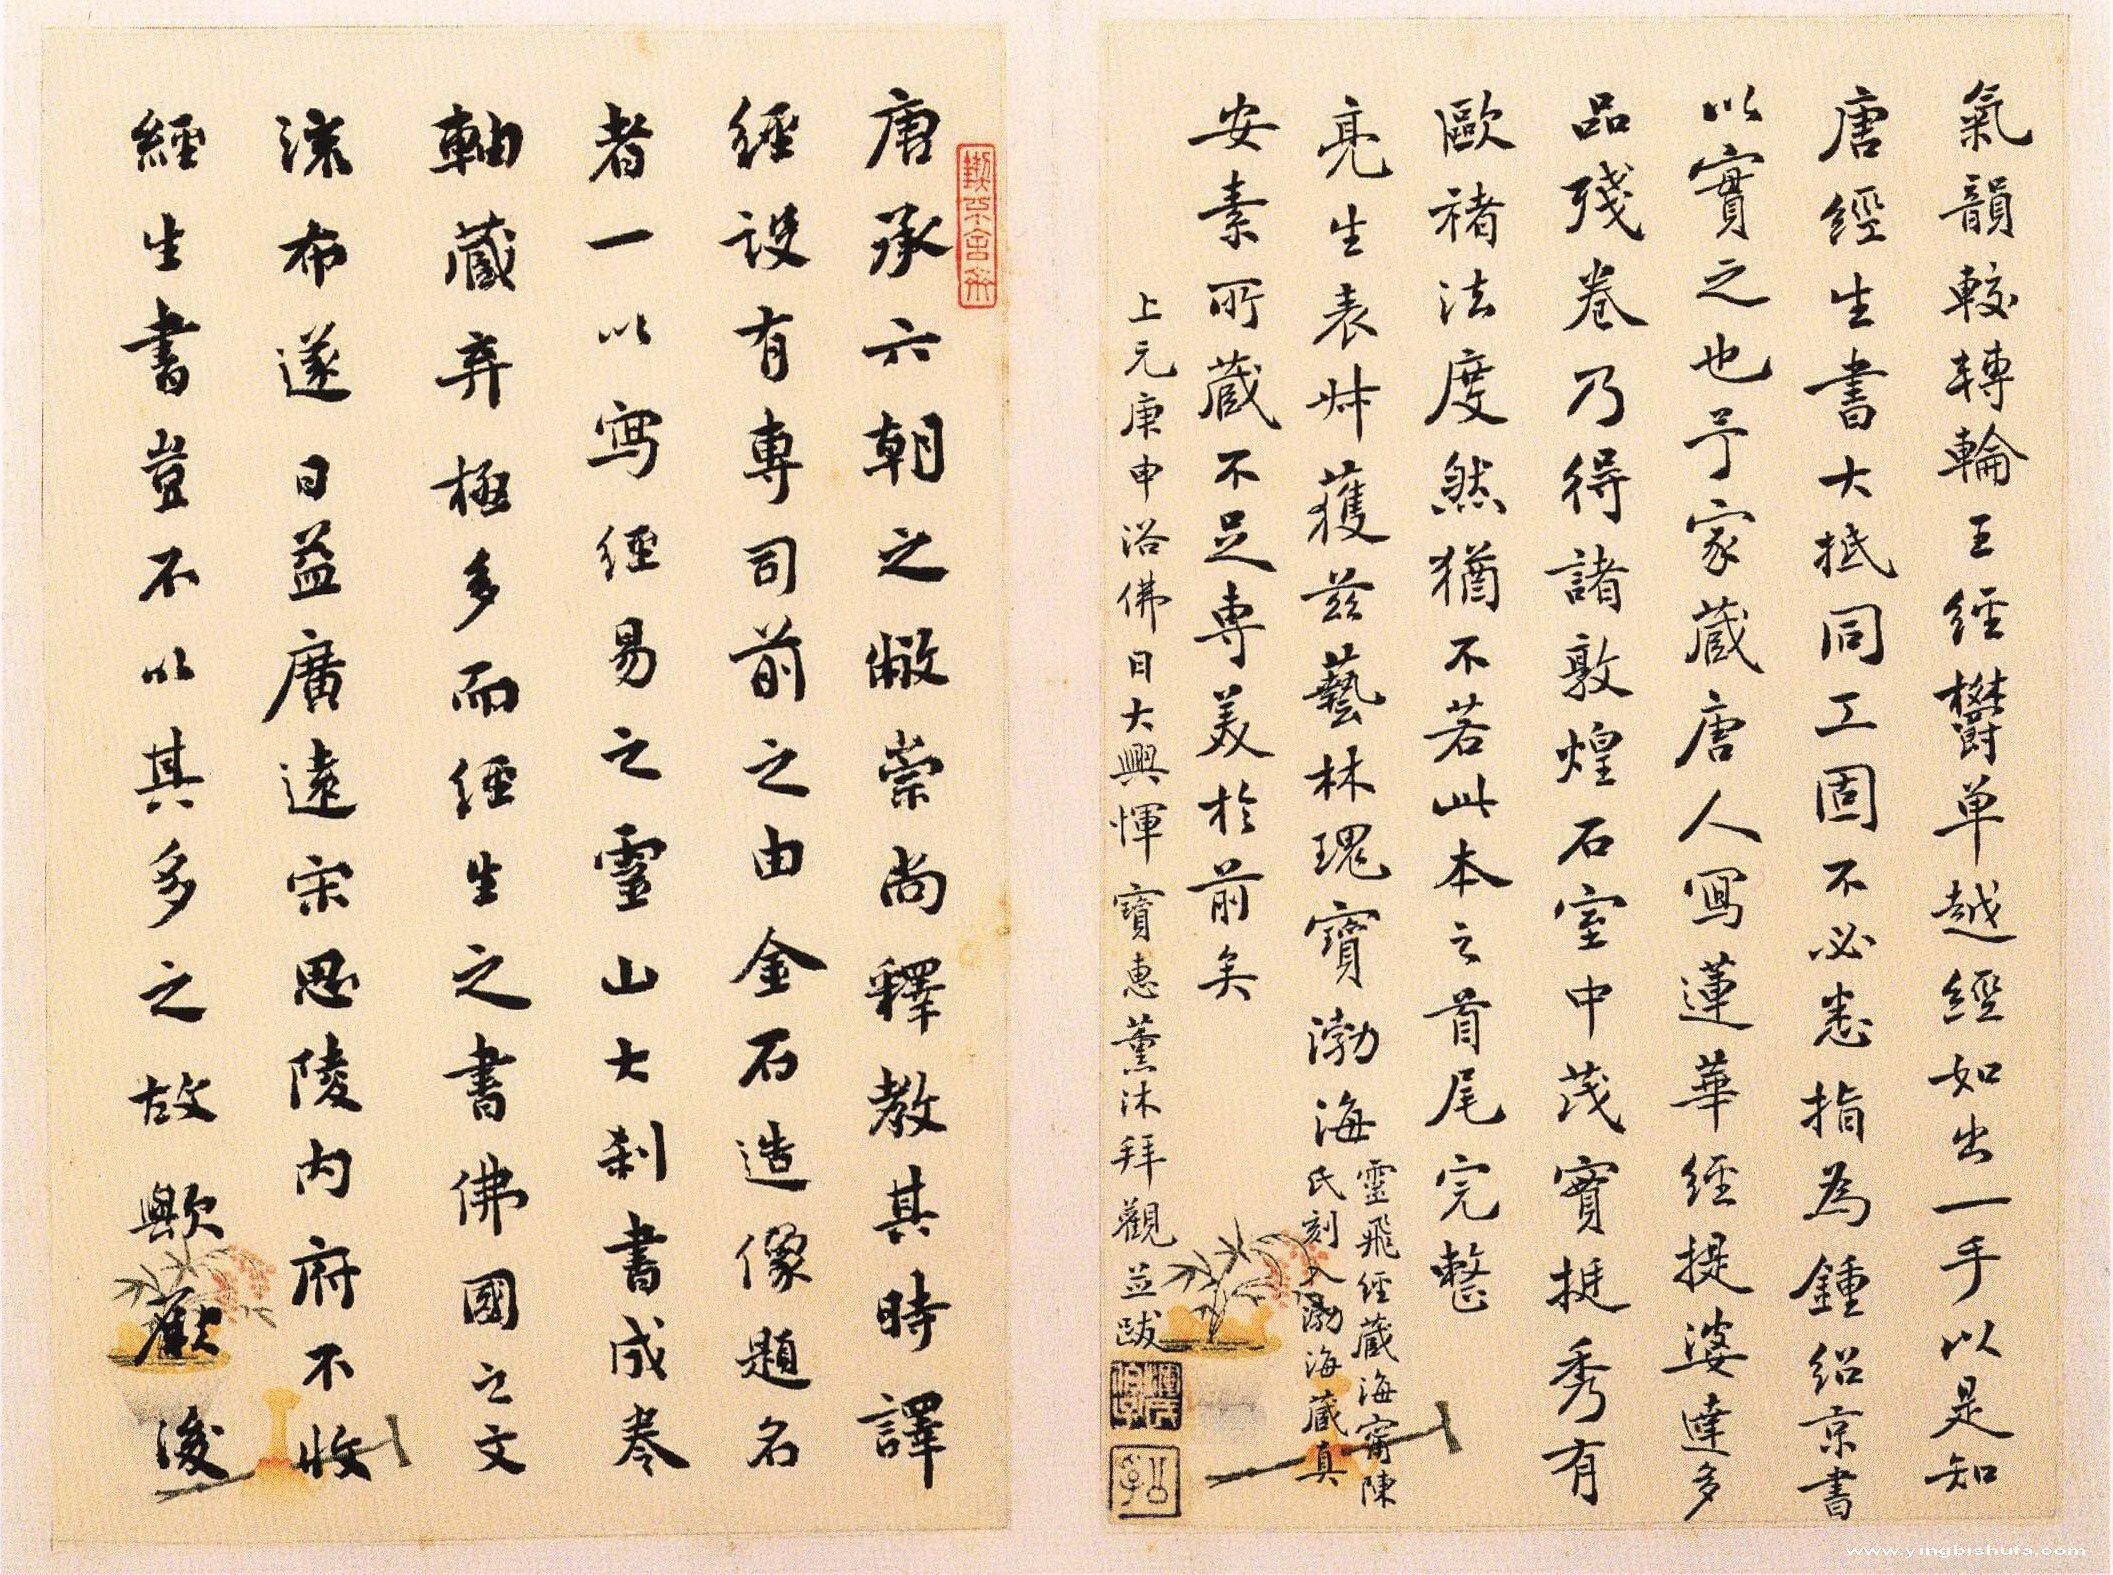 氣韻較轉輪王經欝单越經如出一手以是知
唐經生書大抵同工固不必悉指為鍾紹京書
以實之也予家藏唐人寫蓮華經提婆達多
品殘卷乃得諸敦煌石室中茂實挺秀有
歐褚法度然猶不若此本之首尾完整
亮生表姊獲茲藝林瑰寶渤海
靈飛經藏海甯陳
氏刻入渤海藏真
安素所藏不足專美於前矣
上元庚申浴佛日大興惲寶惠薰沐拜觀並跋
唐承六朝之敝崇尚釋教其時譯
經設有專司前之由金石造像題名
者一以寫經易之靈山大刹書成卷
軸藏弆極多而經生之書佛國之文
流布遂日益廣遠宋思陵内府不收
經生書豈不以其多之故歟顧後
www.yingbishufa.com